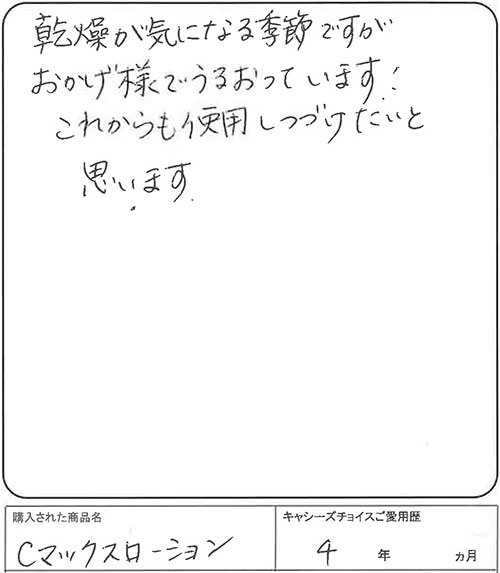 乾燥が気になる季節ですが
おかげ様でうるおっています!
これからも使用しつづけたいと
思います.
購入された商品名
キャシーズチョイスご愛用歴
Cマックスローション
4 年 ヵ月